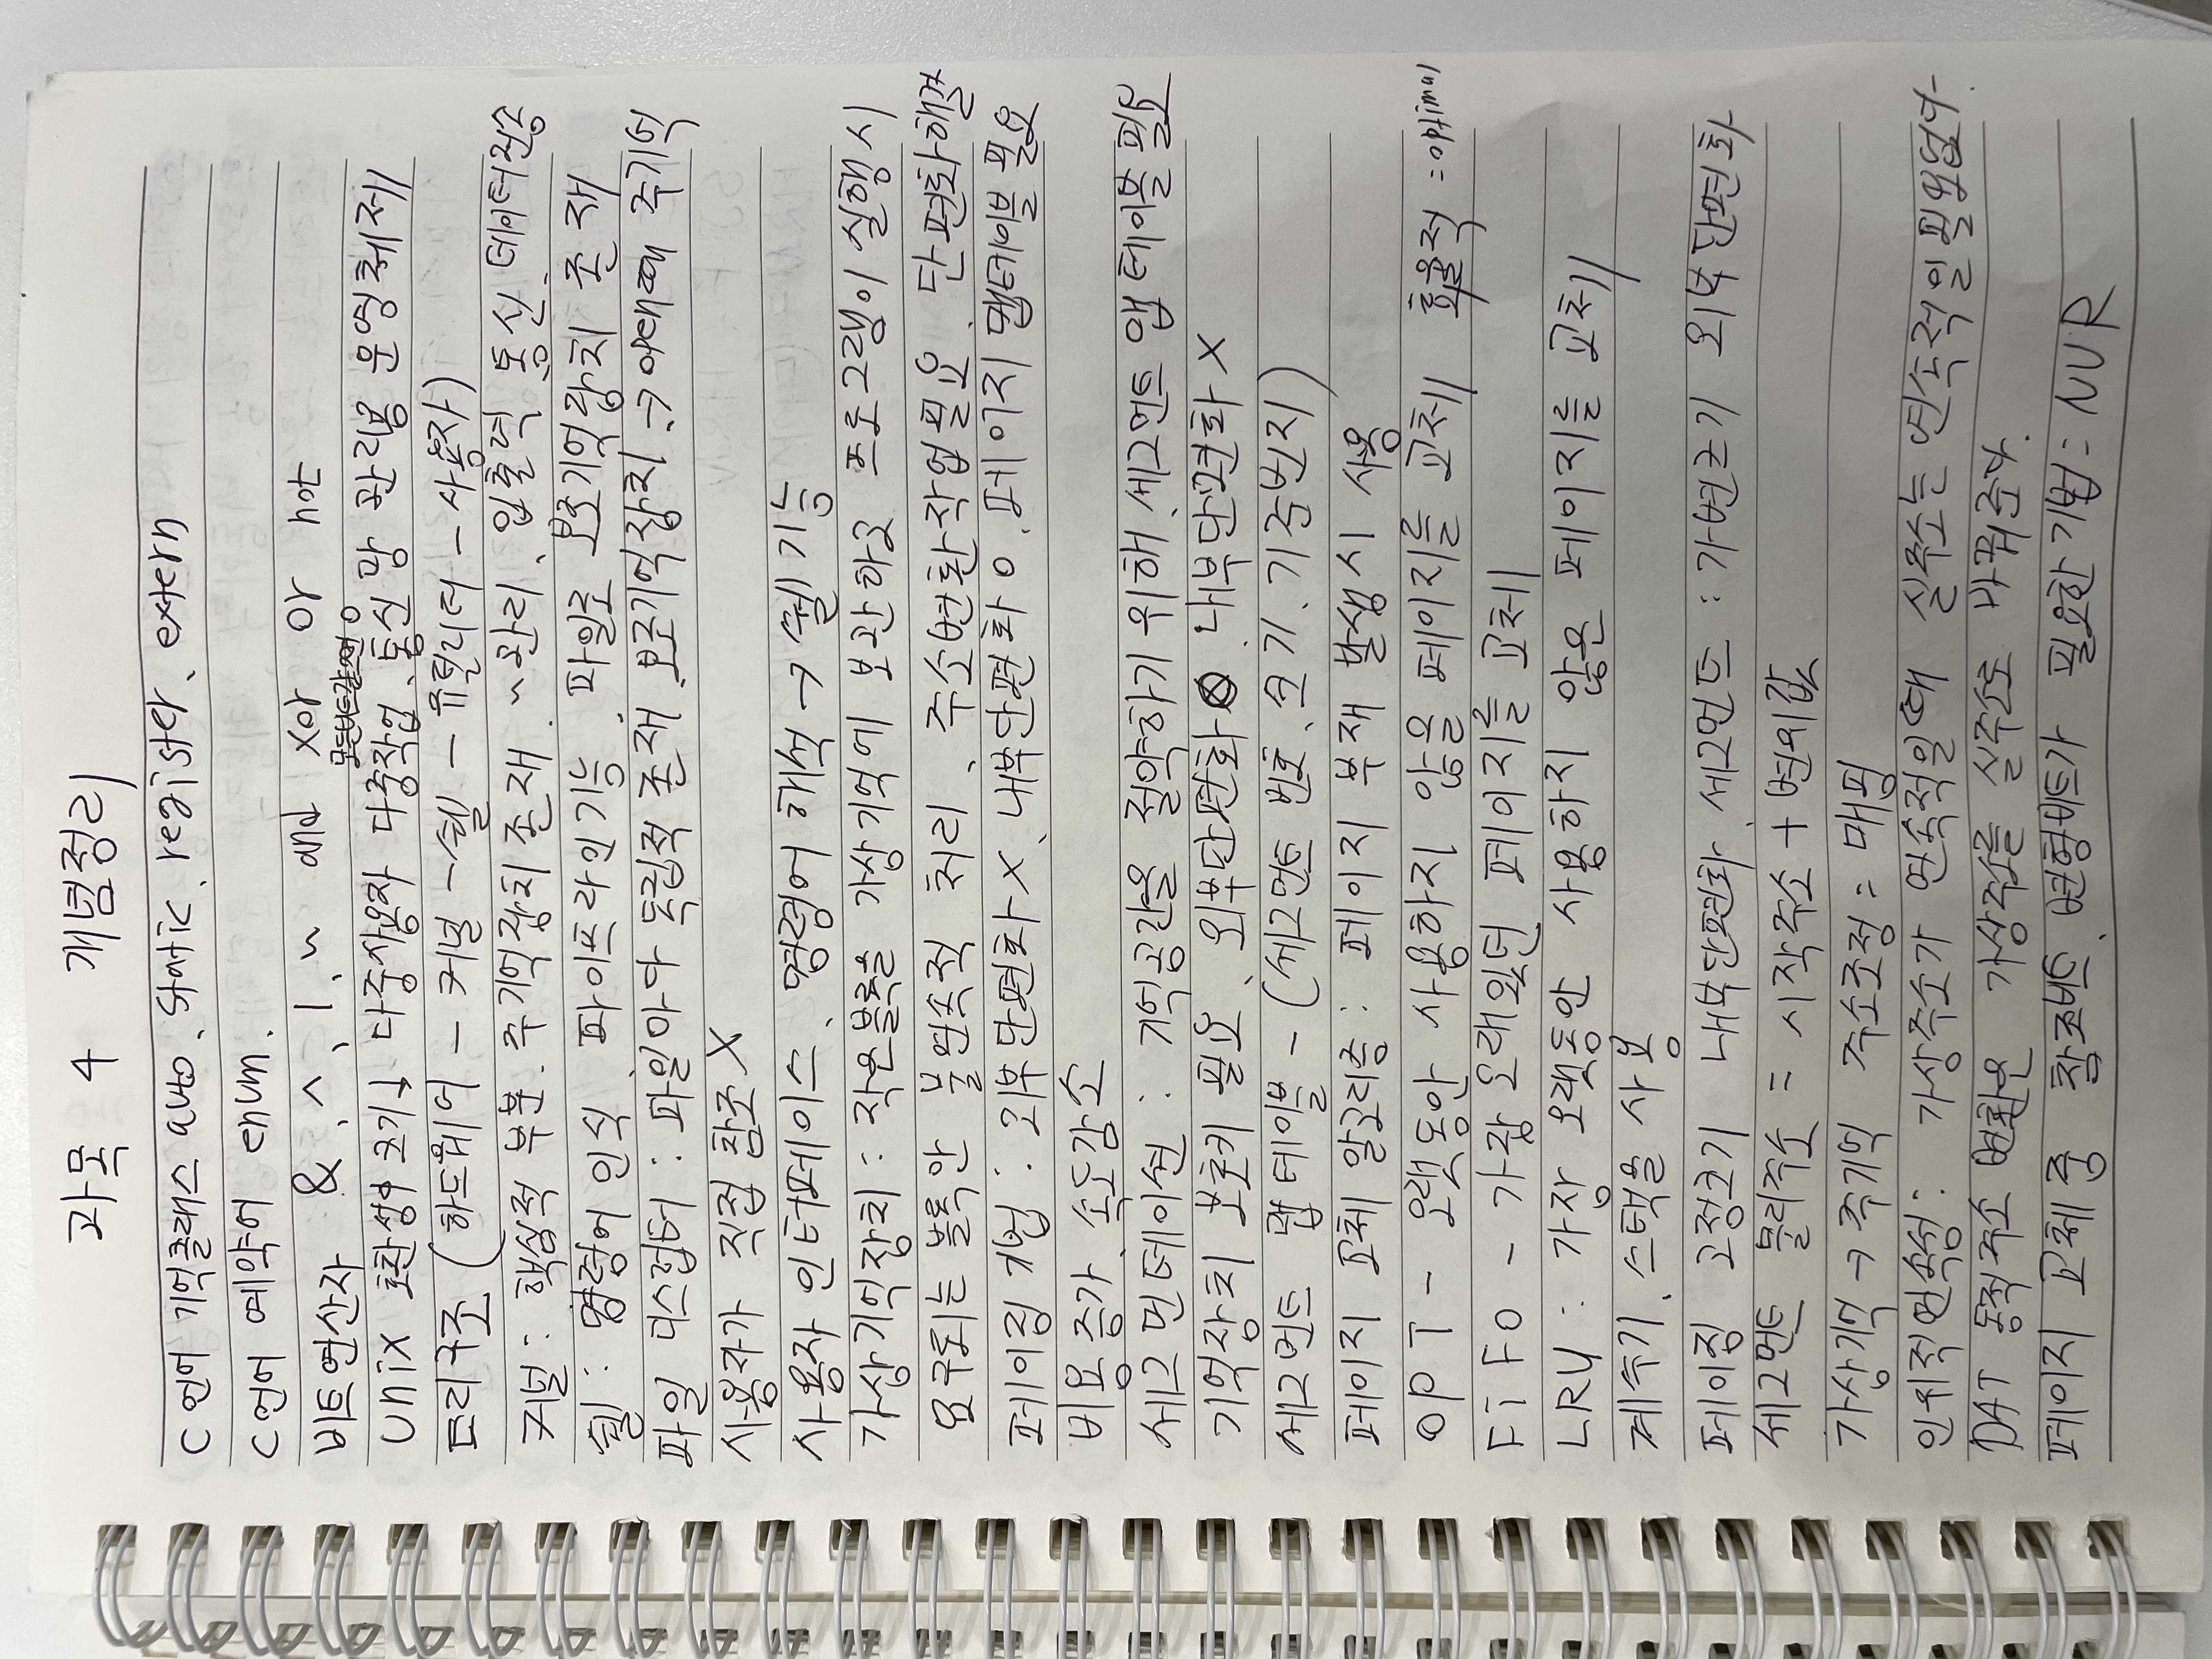 과목 4 개념정리
C언어 기억클래스 auto, static, register, extern
C언어 예약어 enum.
비트연산자 &, ^, |, ~ and xor or not
모든비트같을때0
Unix 호환성↑ 크기↓ 다중사용자 다중작업, 통신망 관리용 운영체제
트리구조 (하드웨어 - 커널 - 쉘 - 유틸리터 - 사용자)
커널 : 핵심적 부분. 주기억장치 존재. ~관리, 입출력, 통신, 데이터전송
쉘 : 명령어 인식 파이프라인기능. 파일로 보조기억장치 존재
파일 디스크립터 : 파일마다 독립적 존재. 보조기억장치 → 어때때 주기억
사용자가 직접 참조 X
사용자 인터페이스. 명령어 해석 → 쉘기능
가상기억장치 : 작은블록을 가상기억에 보관하고 프로그램이 실행시
요구되는 블록만 불연속적 처리, 주소변환작업필요, 단편화해결
페이징 기법 : 외부단편화 X, 내부단편화 O, 페이지 맵테이블 필요
비용증가, 속도감소
세그먼테이션 : 기억공간을 절약하기 위해, 세그먼트 맵 테이블 필요
기억장치 보호키 필요, 외부단편화 O, 내부단편화 X
세그먼트 맵 테이블 - (세그먼트 번호, 크기, 기준번지)
페이지 교체 알고리즘 : 페이지 부재 발생시 사용
OPT - 오랫동안 사용하지 않을 페이지를 교체 효율적 =optimal
FiFO - 가장 오래있던 페이지를 교체
LRU : 가장 오랫동안 사용하지 않은 페이지를 교체
계수기, 스택을 사용
페이징 고정크기 내부단편화, 세그먼트 : 가변크기 외부단편화
세그먼트 물리주소 = 시작주소 + 변위값
가상기억 → 주기억 주소조정 = 매핑
인위적연속성 : 가상주소가 연속적일때 실주소는 연속적일필요없다
DAT 동적주소 변환은 가상주소를 실주소로 바꿔준다.
페이지 교체 중 참조비트, 변형비트가 필요한 기법 : NUR